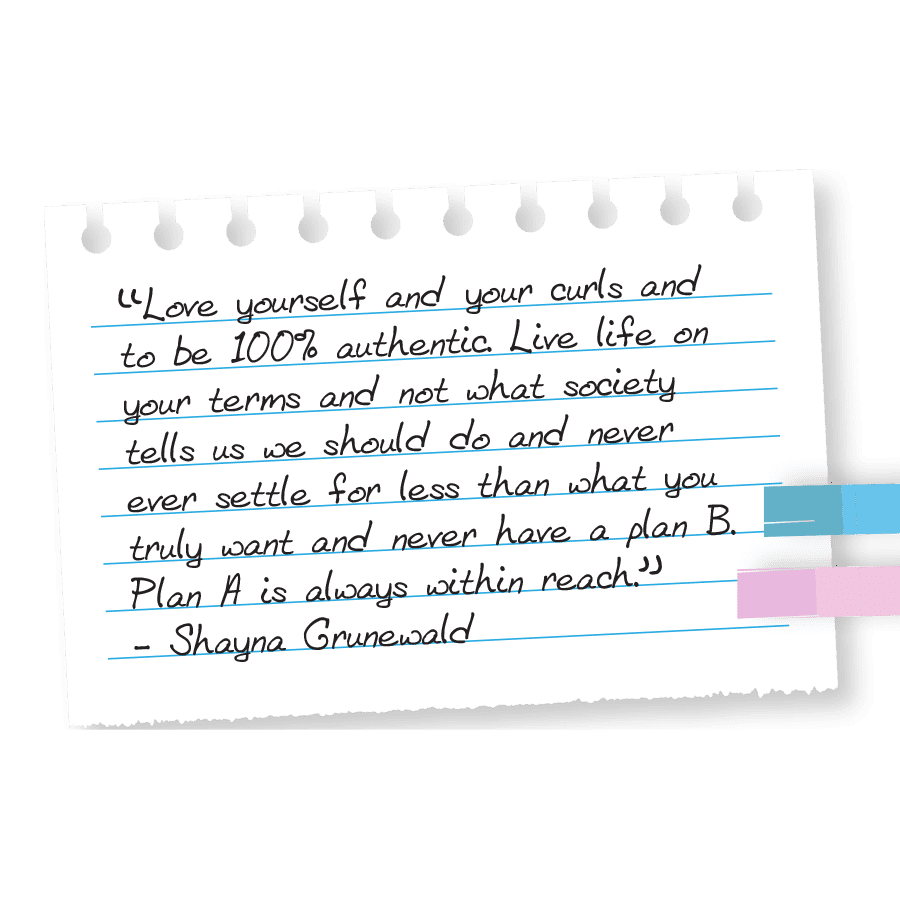 “Love yourself and your curls and
to be 100% authentic. Live life on
your terms and not what society
tells us we should do and never
ever settle for less than what you
truly want and never have a plan B.
Plan A is always within reach.”
- Shayna Grunewald